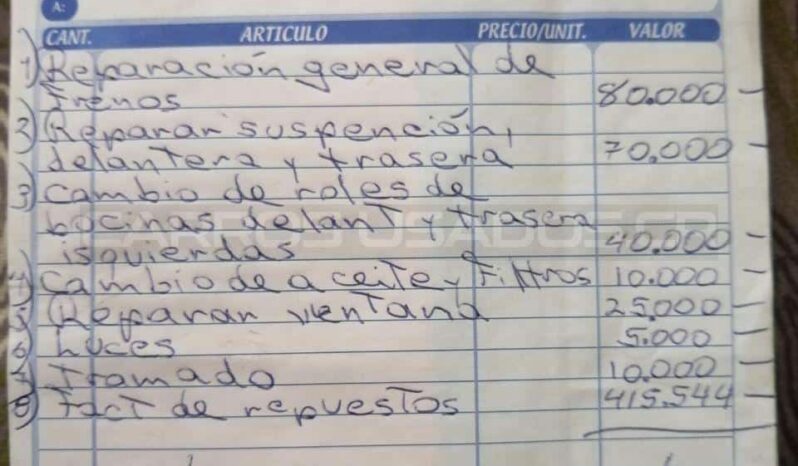 A:
CANT. ARTICULO PRECIO/UNIT. VALOR
1) Reparación general de
frenos 80.000 —
2) Reparar suspención,
delantera y trasera 70.000 —
3) Cambio de roles de
bocinas delant y trasera
izquierdas 40.000 —
4) Cambio de aceite y filtros 10.000 —
5) Reparar ventana 25.000 —
6) Luces 5.000 —
7) Tramado 10.000 —
8) Fact de repuestos 415.544 —
CARROS USADOS CR